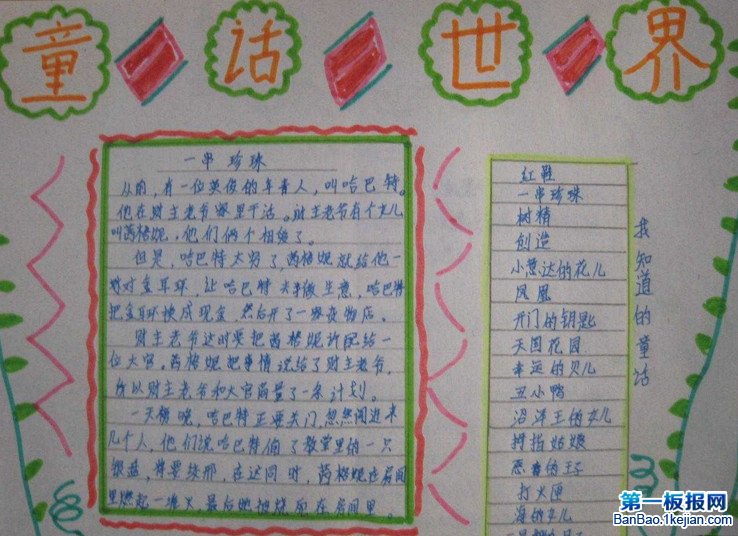 童话世界
一串珍珠
从前，有一位英俊的年青人，叫哈巴特。
他在财主老爷哪里干活。财主老爷有个女儿
叫芮格妮，他们俩个相爱了。
但是，哈巴特太穷了，芮格妮就给他一
对金耳环，让哈巴特去做生意，哈巴特
把金耳环换成现金，然后开了一家衣物店。
财主老爷这时要把芮格妮许配给一
位大官。芮格妮把事情说给了财主老爷，
所以财主老爷和大官商量了一条计划。
一天傍晚，哈巴特正要关门，忽然闯进来
几个人，他们说哈巴特偷了教堂里的一只
银盘，在这同时，芮格妮在房间
里燃起一堆火，最后她被烧死在房间里。
红鞋
一串珍珠
树精
创造
小意达的花儿
凤凰
开门的钥匙
天国花园
幸运的贝儿
丑小鸭
沼泽王的女儿
拇指姑娘
恶毒的王子
打火匣
海的女儿
我知道的童话
第一板报网
BanBao.1kejian.com